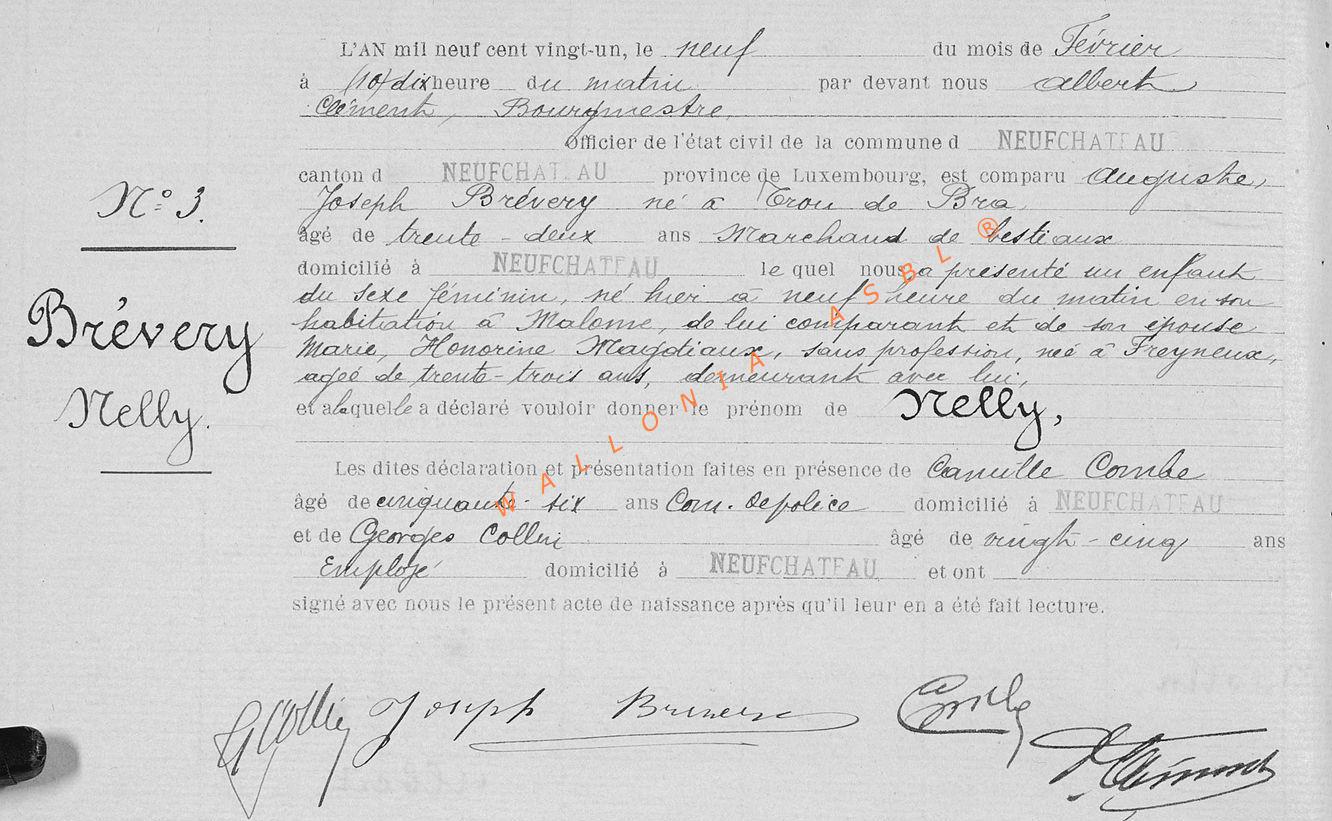 L'AN mil neuf cent vingt-un, le neuf du mois de Février
à (10) dix heure du matin par devant nous Albert
Clément, Bourgmestre
Officier de l'état civil de la commune d NEUFCHATEAU
canton d NEUFCHATEAU province de Luxembourg, est comparu Auguste,
Joseph Brévery né à Trou de Bra
N° 3.
âgé de trente-deux ans Marchand de bestiaux
domicilié à NEUFCHATEAU le quel nous a présenté un enfant
du sexe féminin, né hier à neuf heure du matin en son
habitation à Malome, de lui comparant et de son épouse
Brévery
Marie, Honorine Magdiaux, sans profession, née à Freyneux,
ageé de trente-trois ans, demeurant avec lui,
Nelly.
et a laquelle a déclaré vouloir donner le prénom de Nelly,
Les dites déclaration et présentation faites en présence de Camille Combe
âgé de cinquante-six ans Com. de police domicilié à NEUFCHATEAU
et de Georges Collin âgé de vingt-cinq ans
Employé domicilié à NEUFCHATEAU et ont
signé avec nous le présent acte de naissance après qu'il leur en a été fait lecture.
G Collin Joseph Brevery
WALLONIA ASBL ®